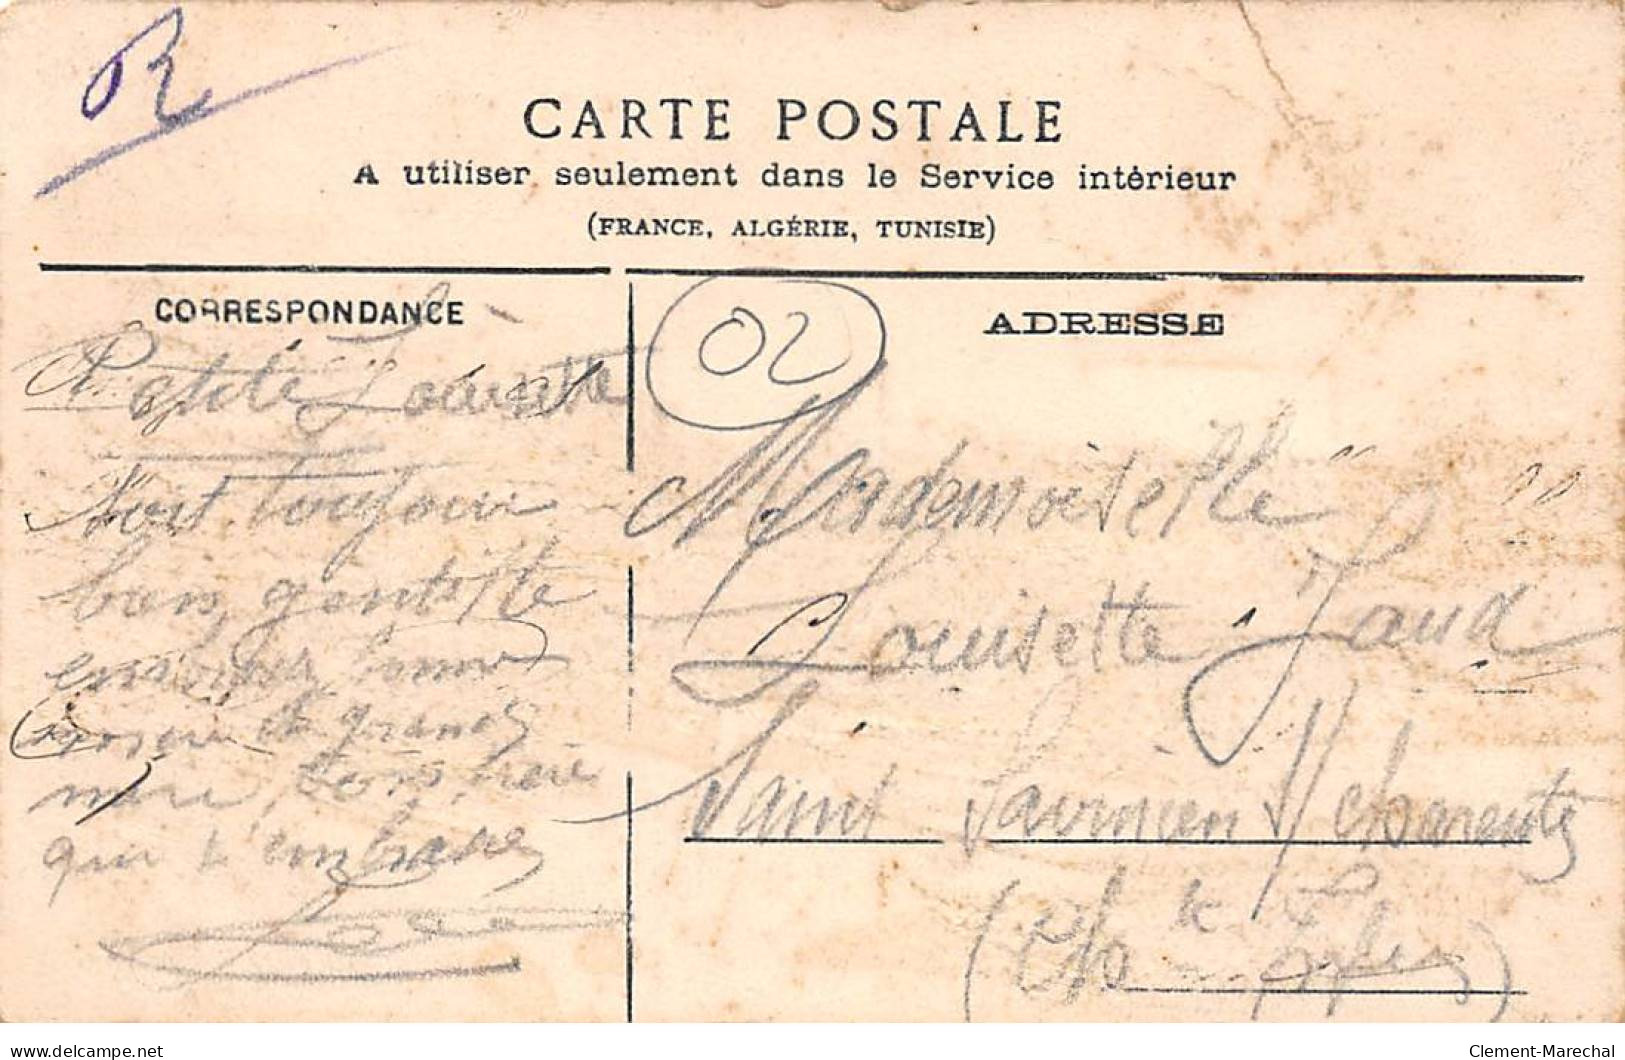 R
CARTE POSTALE
A utiliser seulement dans le Service intérieur
(FRANCE, ALGÉRIE, TUNISIE)
CORRESPONDANCE
Petite Louisette
Soit toujour
bien gentille
embrasse
et grand
mère, ton
qui t'embrasse
02
ADRESSE
Mademoiselle
Louisette Jaud
Saint Savinien s/ charente
(Ch
delcampe.net
Clement-Marechal